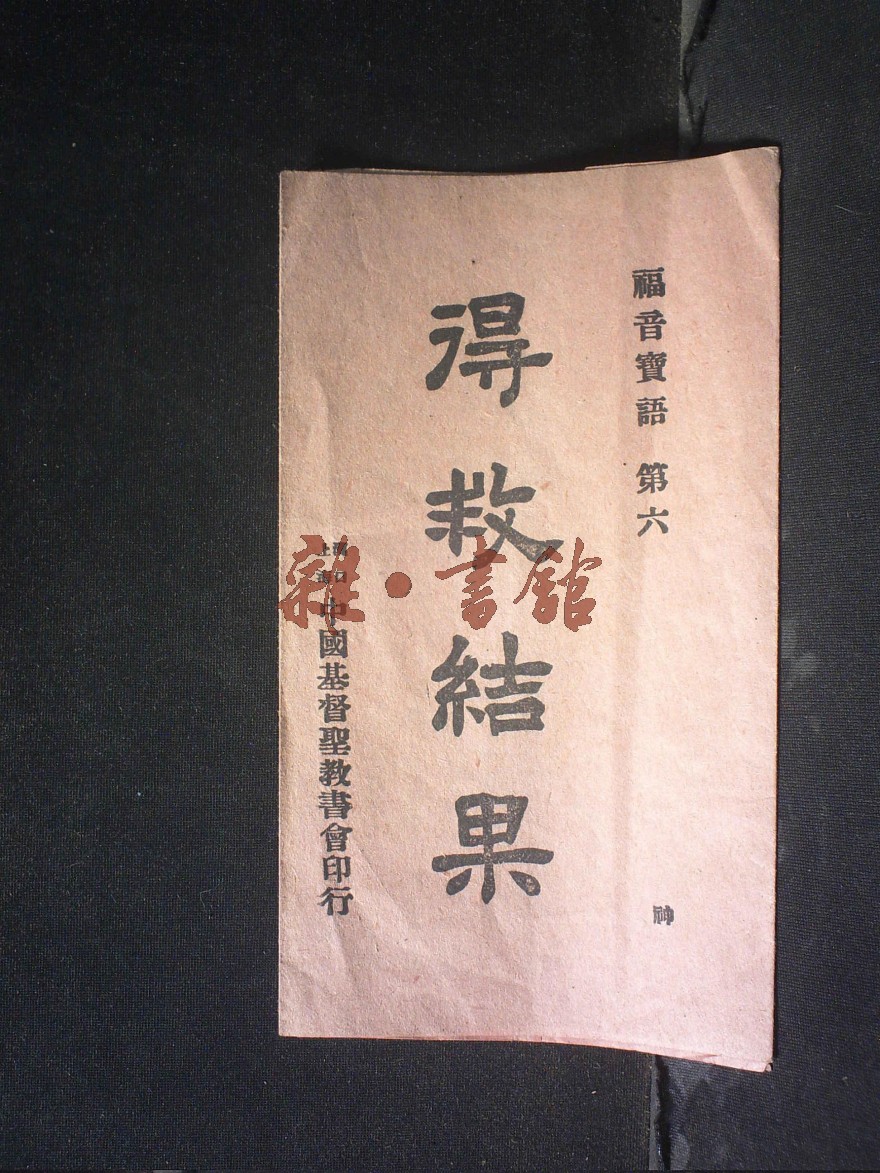 福音寶語 第六
神
得救結果
中國基督聖教書會印行
雜·書館